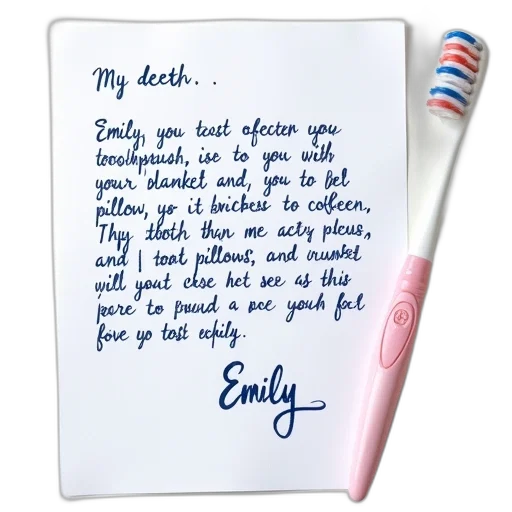 My deeth. .
Emily, you tost ofecter you
teoothprush, ise to you with
your planket and, you to Bel
pillow, ys it bricbess to coffeen,
Thyy tooth than me acty pleus,
and I toat pillows, and
will yout ckse hct see as this
pore to a pce youh focl
fove yo tost ecpily.
Emily